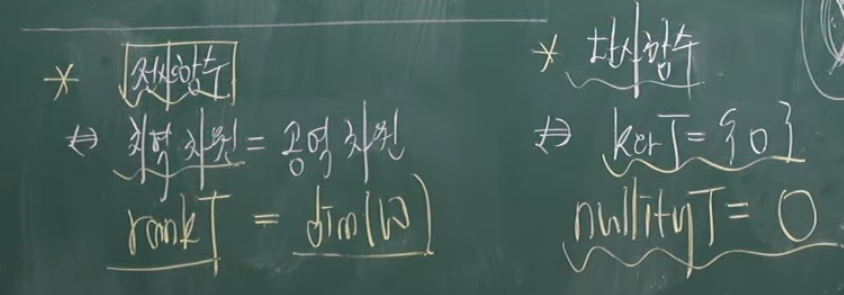 * 전사함수
⇔ 치역 차원 = 공역 차원
rank T = dim(W)
* 단사함수
⇔ ker T = {0}
nullity T = 0